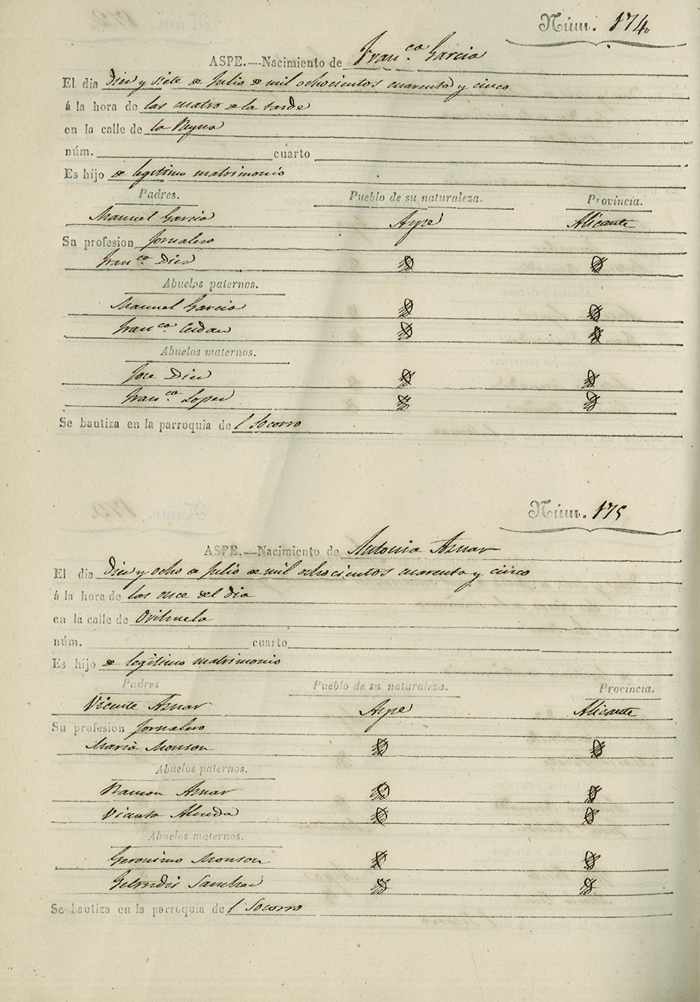 Núm. 174
ASPE.—Nacimiento de Fran.ca Garcia
El dia Diez y siete de Julio de mil ochocientos cuarenta y cinco
á la hora de las cuatro de la tarde
en la calle de la Reyna
núm. cuarto
Es hijo de legitimo matrimonio
Padres. Pueblo de su naturaleza. Provincia.
Manuel Garcia Aspe Alicante
Su profesion Jornalero
Fran.ca Diez
Abuelos paternos.
Manuel Garcia
Fran.ca
Abuelos maternos.
Jose Diez
Fran.ca Lopez
Se bautiza en la parroquia de l Socorro
Núm. 175
ASPE.—Nacimiento de Antonia Aznar
El dia Diez y ocho de Julio de mil ochocientos cuarenta y cinco
á la hora de las once del dia
en la calle de Orihuela
núm. cuarto
Es hijo de legitimo matrimonio
Padres Pueblo de su naturaleza. Provincia.
Vicente Aznar Aspe Alicante
Su profesion Jornalero
Maria Monzon
Abuelos paternos.
Ramon Aznar
Vicenta Almeda
Abuelos maternos.
Geronimo Monzon
Getrudis Sanchez
Se bautiza en la parroquia de l Socorro